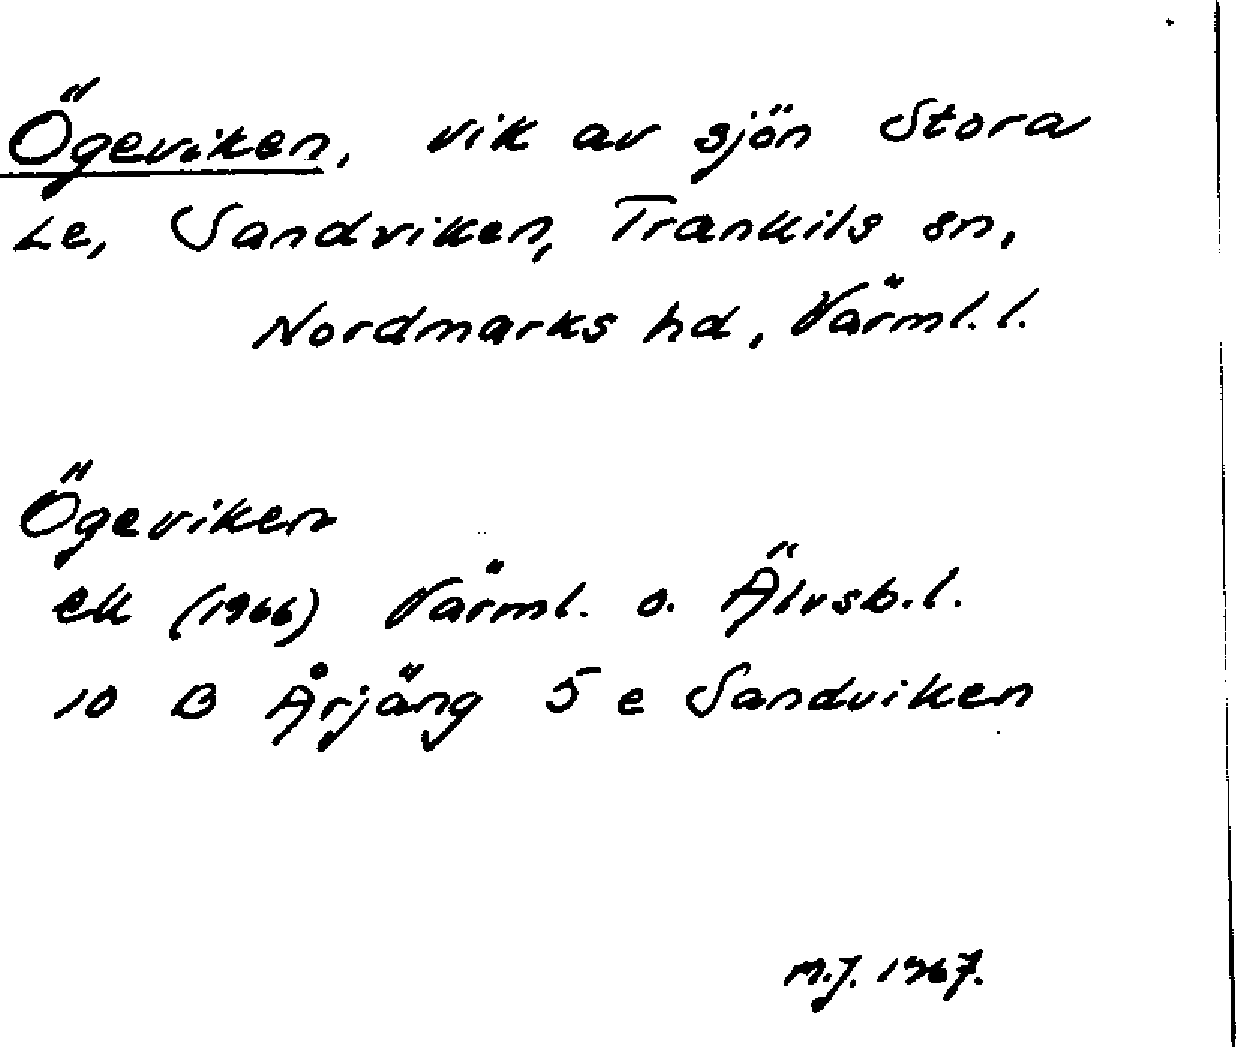 Ögeviken, vik av sjön Stora
Le, Sandviken, Trankils sn,
Nordmarks hd, Värml. l.
Ögeviken
ek (1966) Värml. o. Älvsb. l.
10 B Årjäng 5 e Sandviken
M.J. 1967.